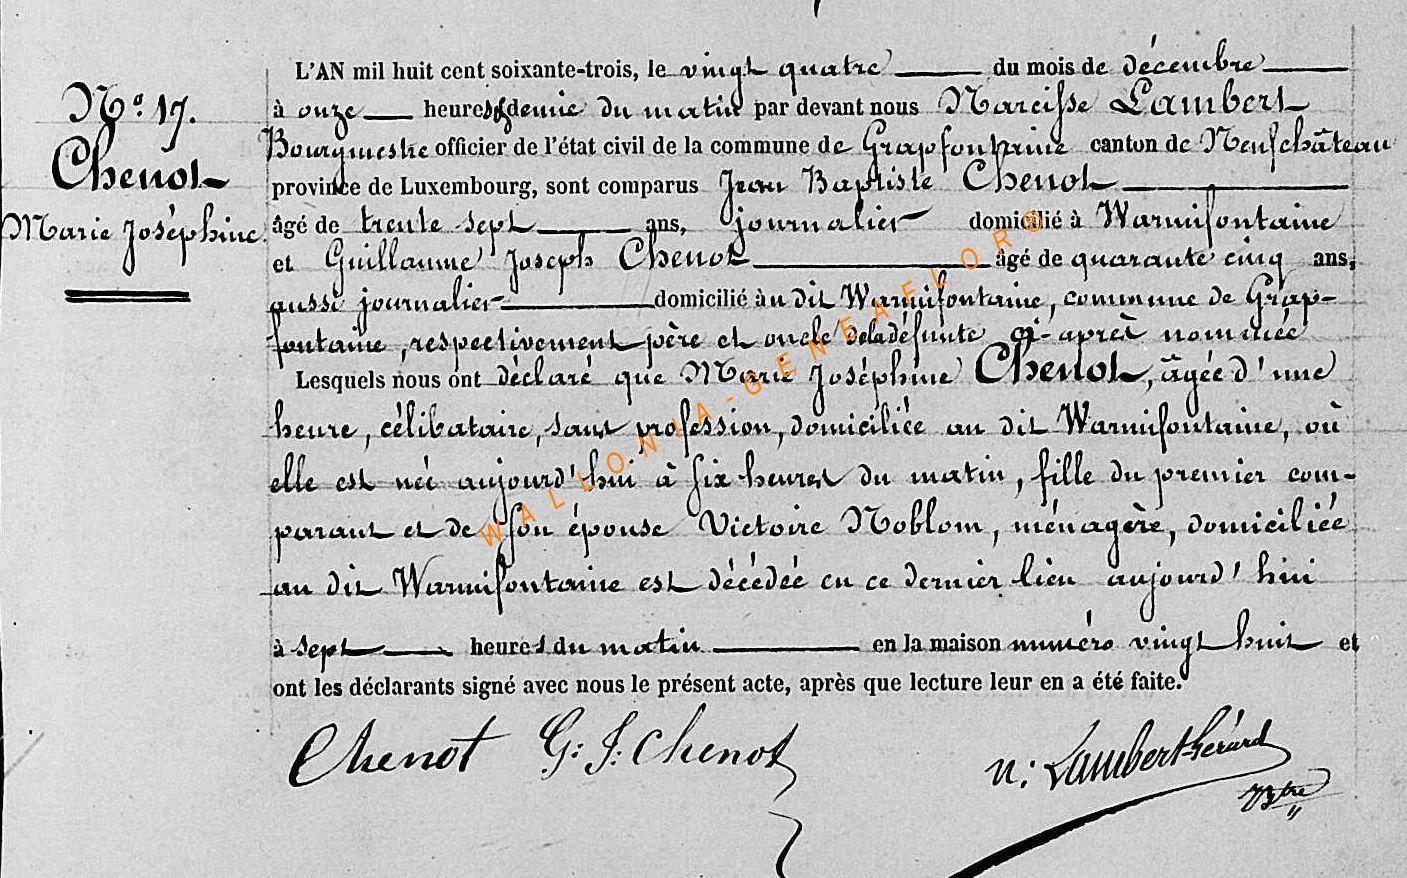 N.o 17.
Chenot
Marie Joséphine.
L'AN mil huit cent soixante-trois, le vingt quatre du mois de décembre
à onze heures & demie du matin par devant nous Narcisse Lambert
Bourgmestre officier de l'état civil de la commune de Grapfontaine canton de Neufchâteau
province de Luxembourg, sont comparus Jean Baptiste Chenot
âgé de trente sept ans, journalier domicilié à Warmifontaine
et Guillaume Joseph Chenot âgé de quarante cinq ans,
aussi journalier domicilié au dit Warmifontaine, commune de Grap-
fontaine, respectivement père et oncle de la défunte ci-après nommée
Lesquels nous ont déclaré que Marie Joséphine Chenot, âgée d'une
heure, célibataire, sans profession, domiciliée au dit Warmifontaine, où
elle est née aujourd'hui à six heures du matin, fille du premier com-
parant et de son épouse Victoire Noblom, ménagère, domiciliée
au dit Warmifontaine est décédée en ce dernier lieu aujourd'hui
à sept heures du matin en la maison numéro vingt huit et
ont les déclarants signé avec nous le présent acte, après que lecture leur en a été faite.
Chenot G: J: Chenot n: Lambert-Gérard
Bgtre
WALLONIA-GENEAFLOR©